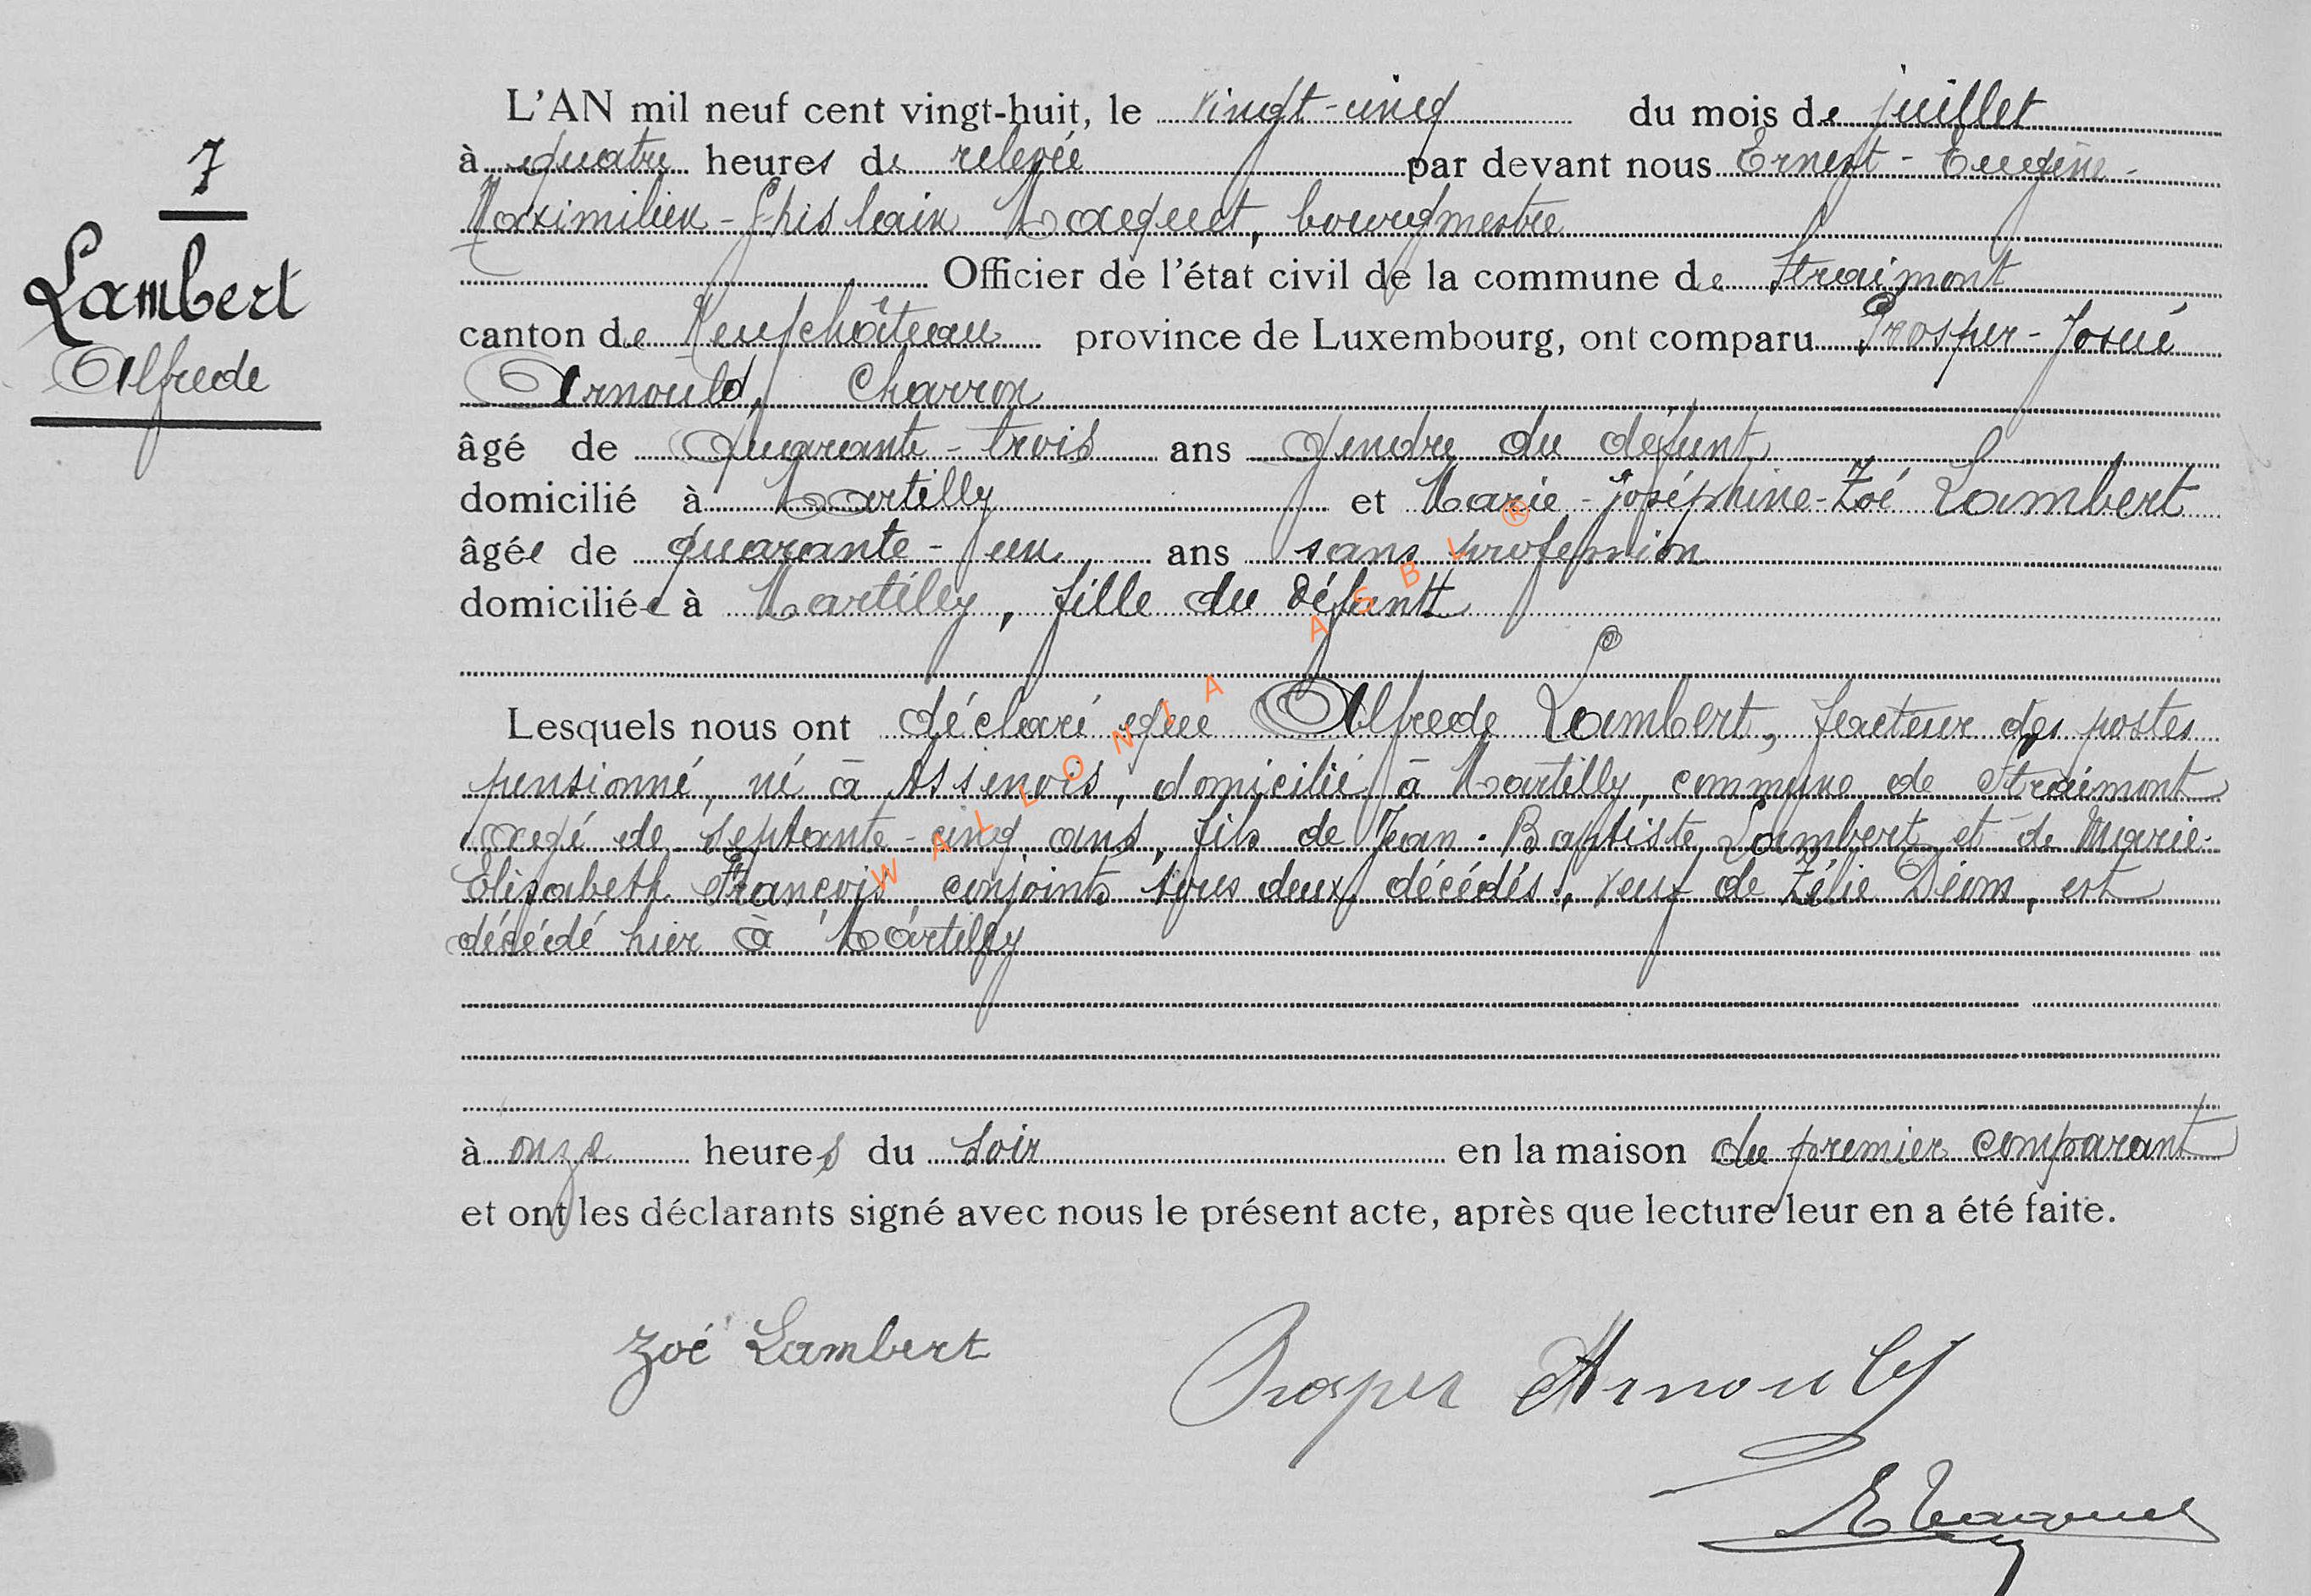 7
Lambert
Alfrede
L'AN mil neuf cent vingt-huit, le vingt-cinq du mois de juillet
à quatre heures de relevée par devant nous Ernest-Eugène-
Maximilien-Ghislain Maquet, bourgmestre
Officier de l'état civil de la commune de Straimont
canton de Neufchâteau province de Luxembourg, ont comparu Prosper-Josué
Arnould, Charron
âgé de quarante-trois ans gendre du défunt
domicilié à Martilly et Marie-Joséphine-Zoé Lambert
âgée de quarante-un ans sans profession
domiciliée à Martilly, fille du défunt
Lesquels nous ont déclaré que Alfrede Lambert, facteur des postes
pensionné, né à Assenois, domicilié à Martilly, commune de Straimont
agé de septante-cinq ans, fils de Jean-Baptiste Lambert et de Marie-
Elisabeth François, conjoints tous deux décédés, veuf de Zélie Dion, est
décédé hier à Martilly
à onze heures du soir en la maison du premier comparant
et ont les déclarants signé avec nous le présent acte, après que lecture leur en a été faite.
Zoé Lambert
Prosper Arnould
E Maquet
WALLONIA ASBL ®